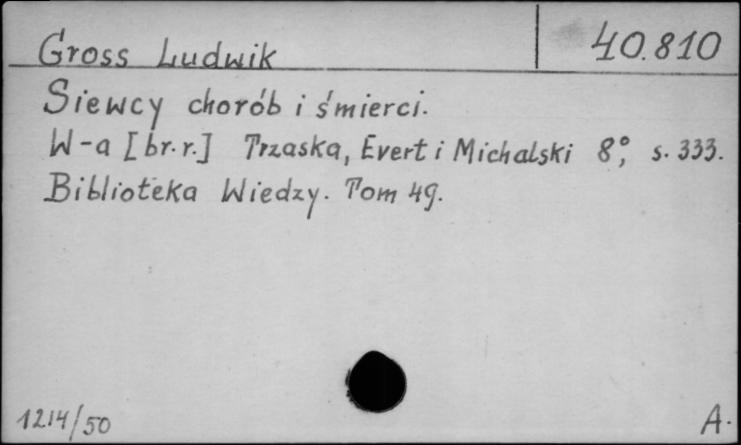 Gross Ludwik 40.810
Siewcy chorób i śmierci.
W-a [br. r.] Trzaska, Evert i Michalski 8°, s. 333.
Biblioteka Wiedzy. Tom 49.
1214/50 A.